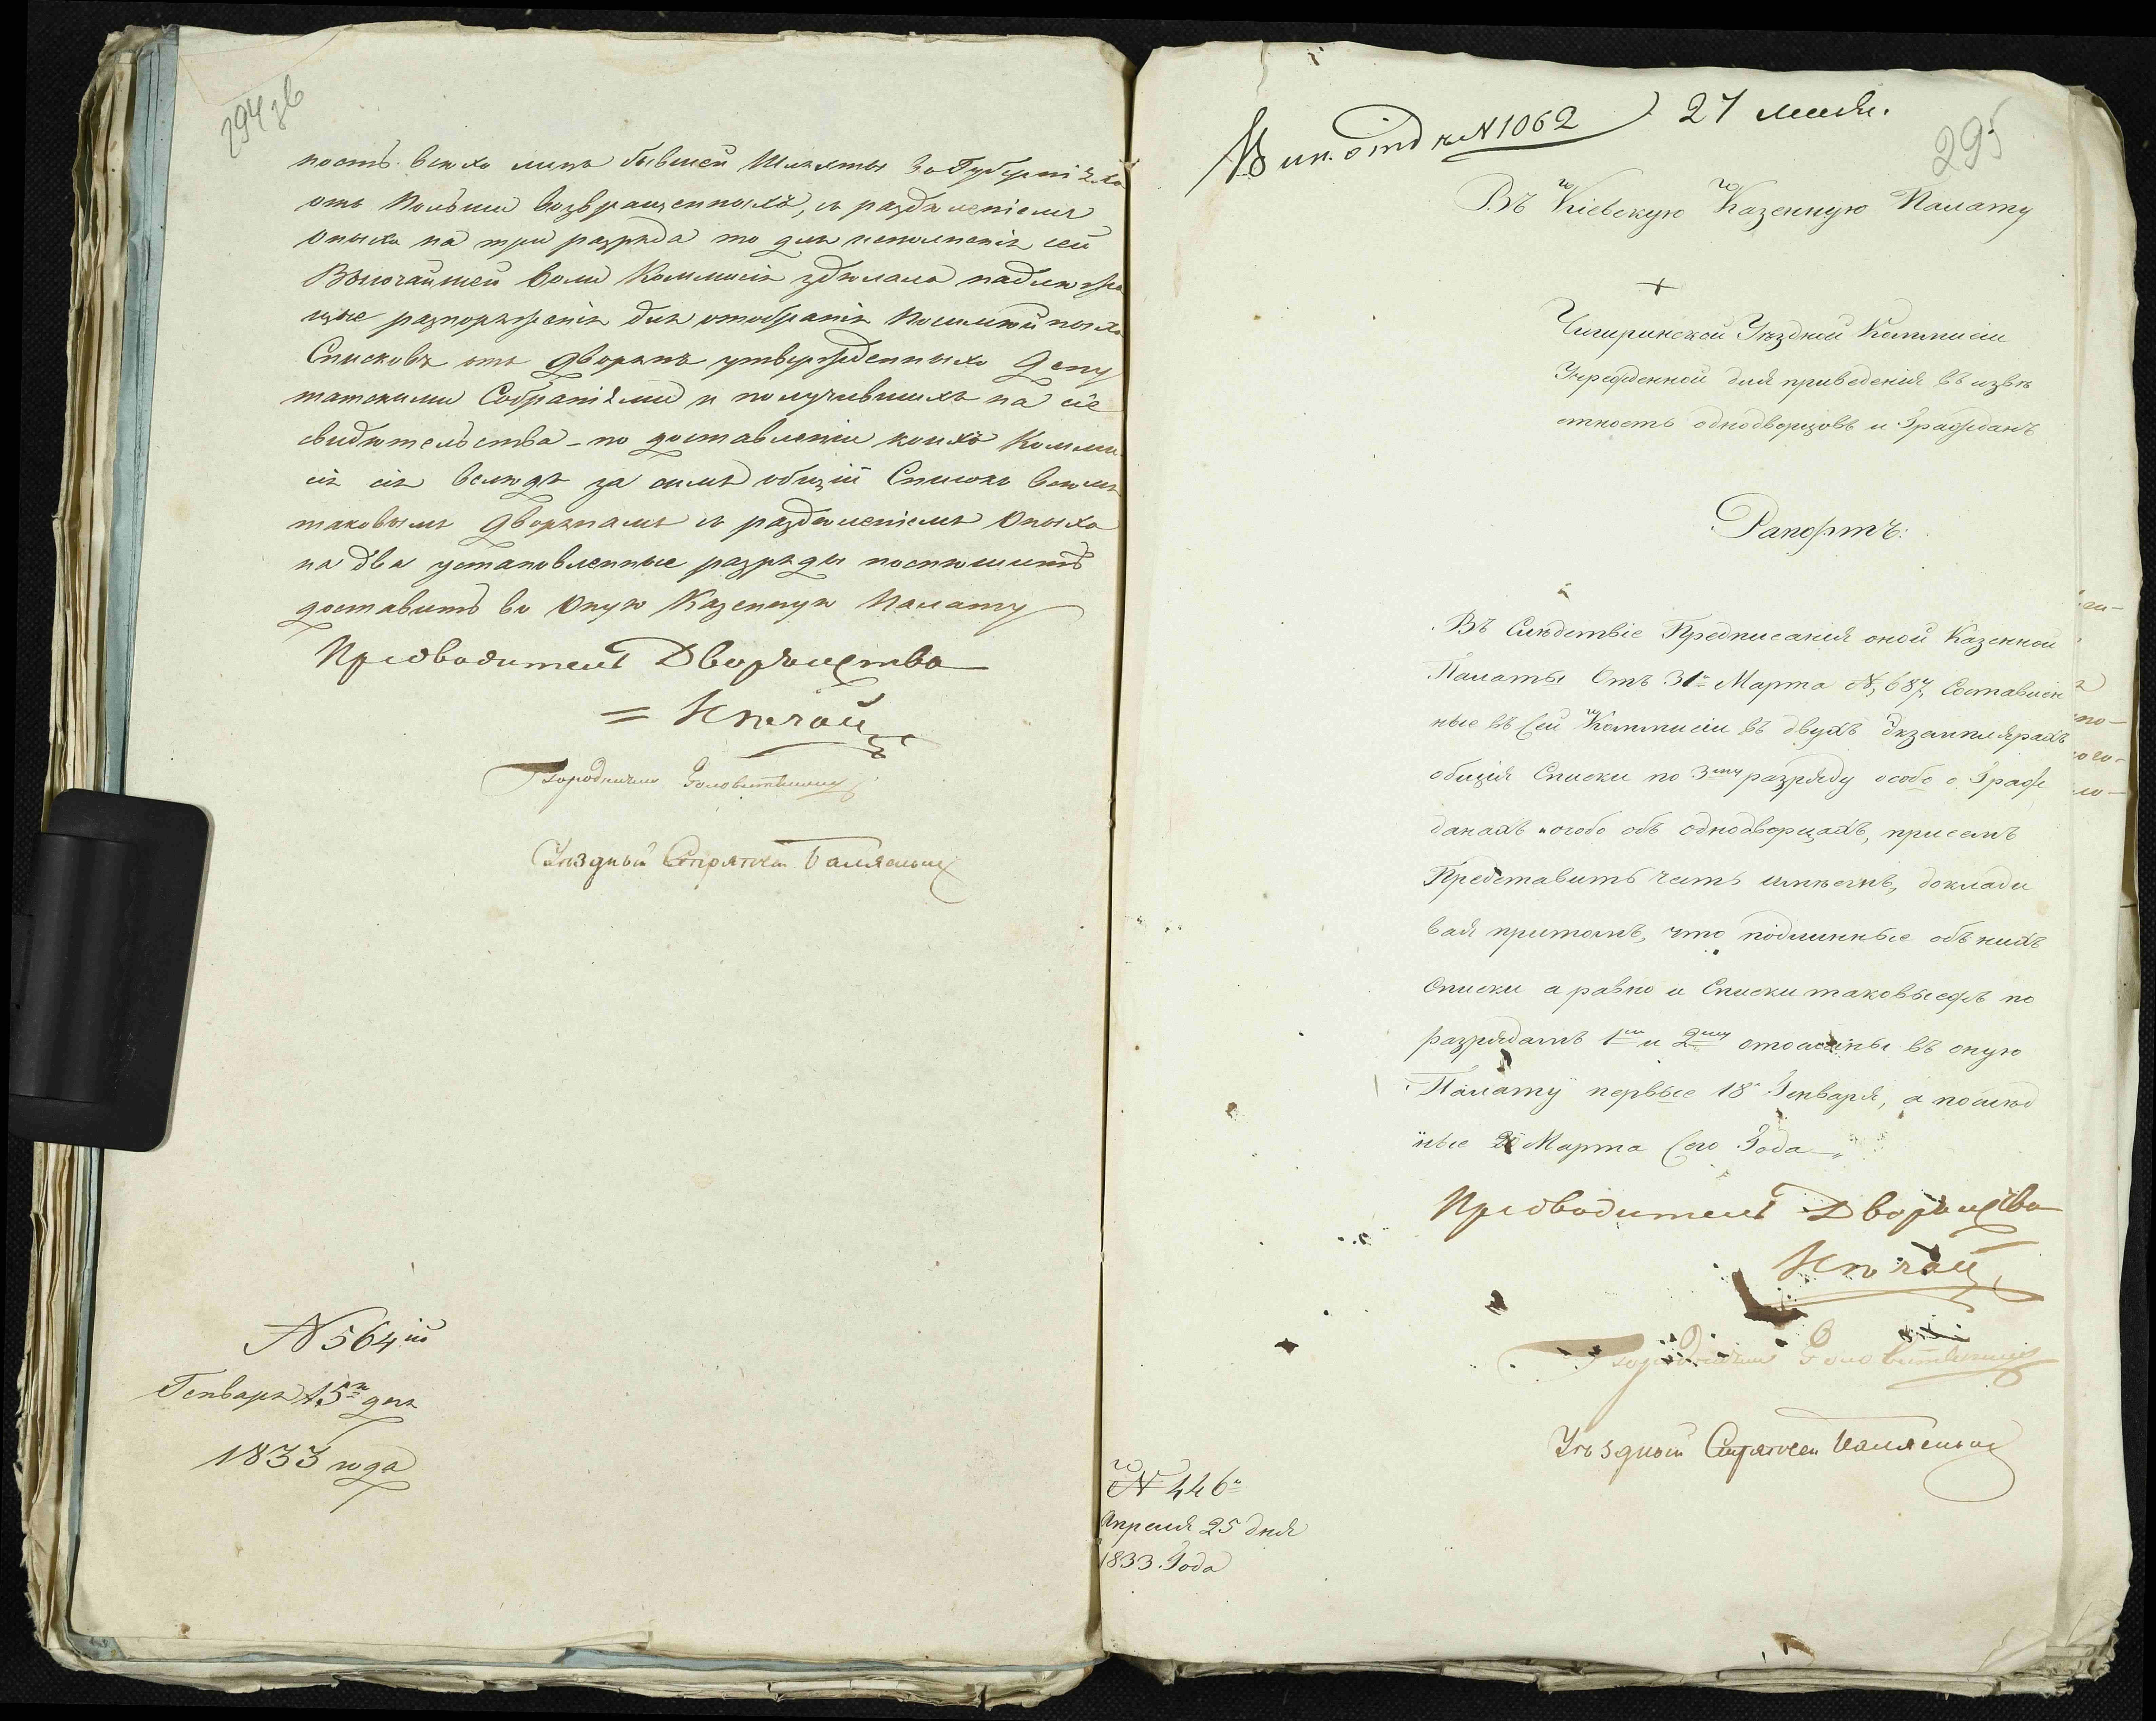 294 зв
ность всѣхъ лицъ бывшей Шляхты въ Губерніяхъ
отъ Польши возвращенныхъ, съ раздѣленіемъ
оныхъ на три разряда то для исполненія сей
Высочайшей воли Коммисія здѣлала надлежа
щие разпоряженія для отобранія Посемейныхъ
Списковъ отъ дворянъ утвержденныхъ Депу
татскими Собраніями и получившихъ на сіе
свидѣтельства - по доставленіи коихъ Комми
сія сія вслѣдъ за симъ общій Списокъ всемъ
таковымъ дворянамъ съ раздѣленіемъ оныхъ
на два установленные разряды поспѣшитъ
доставить во оную Казенную Палату
Предводитель Дворянства
= Нечай
Городничий
Уѣздный Стряпчей
N 564й
Генваря 15 дня
1833 года
N 1062 27 маія.
295
Въ Кіевскую Казенную Палату
Чигиринской Уѣздной Коммисіи
Учрежденной для приведенія въ извѣ
стность однодворцовъ и Гражданъ
Рапортъ:
Въ Слѣдствіе Предписанія оной Казенной
Палаты Отъ 31го Марта N, 687, Составлен
ные въ Сей Коммисіи въ двухъ Экземплярахъ
общія Списки по 3му разряду особо о Граж
данахъ и особо объ однодворцахъ, присемъ
Представить честь имѣетъ, доклады
вая притомъ, что подлинные объ нихъ
Списки а равно и Списки таковыежъ по
разрядамъ 1му и 2му отосланы въ оную
Палату первые 18го Генваря, а послѣд
ные Марта Сего Года
Предводитель Дворянства
Нечай
Городничий
Уѣздный Стряпчей
N 446й
Апреля 25 дня
1833. Года